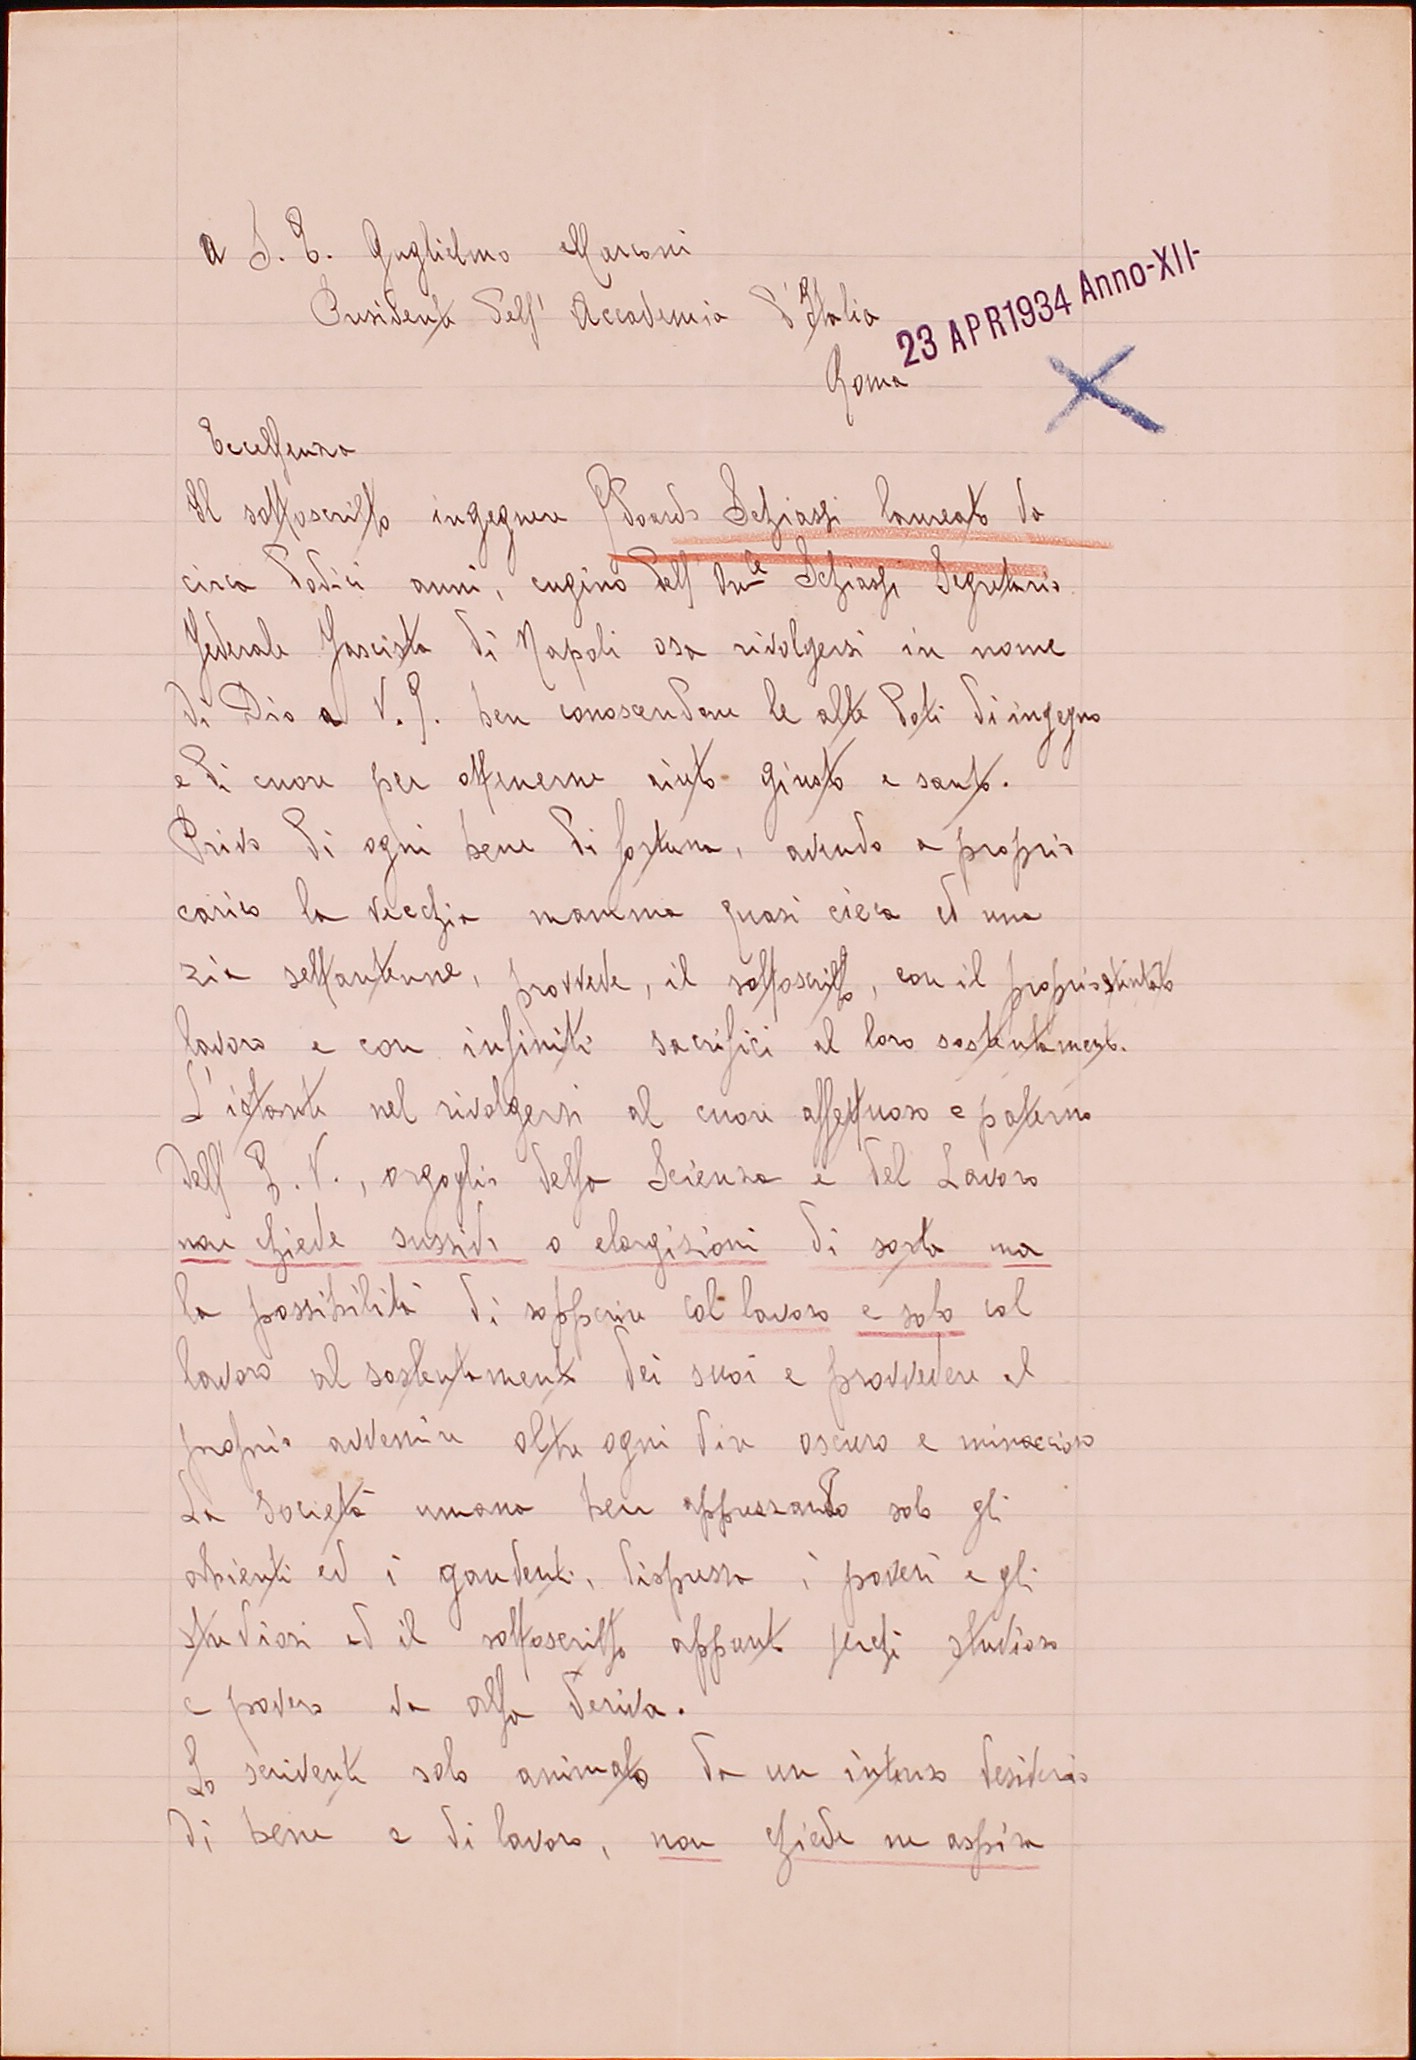 a S. E. Guglielmo Marconi
Presidente dell' Accademia d'Italia
23 APR 1934 Anno-XII-
Roma
Eccellenza
Il sottoscritto ingegnere Edoardo Schiassi laureato da
circa dodici anni, cugino dell' On.le Schiassi Segretario
Federale Fascista di Napoli osa rivolgersi in nome
di Dio a V. E. ben conoscendone le alte doti di ingegno
e di cuore per ottenerne aiuto giusto e santo.
Privo di ogni bene di fortuna, avendo a proprio
carico la vecchia mamma quasi cieca ed una
zia settantenne, provvede, il sottoscritto, con il proprio stentato
lavoro e con infiniti sacrifici al loro sostentamento.
L'istante nel rivolgersi al cuore affettuoso e paterno
dell' E. V., orgoglio della Scienza e del Lavoro
non chiede sussidi o elargizioni di sorta ma
la possibilità di sopperire col lavoro e solo col
lavoro al sostentamento dei suoi e provvedere al
proprio avvenire oltre ogni dire oscuro e minaccioso
La società umana ben apprezzando solo gli
abienti ed i gaudenti, disprezza i poveri e gli
studiosi ed il sottoscritto appunto perchè studioso
e povero va alla deriva.
Lo scrivente solo animato da un intenso desiderio
di bene e di lavoro, non chiede ne aspira